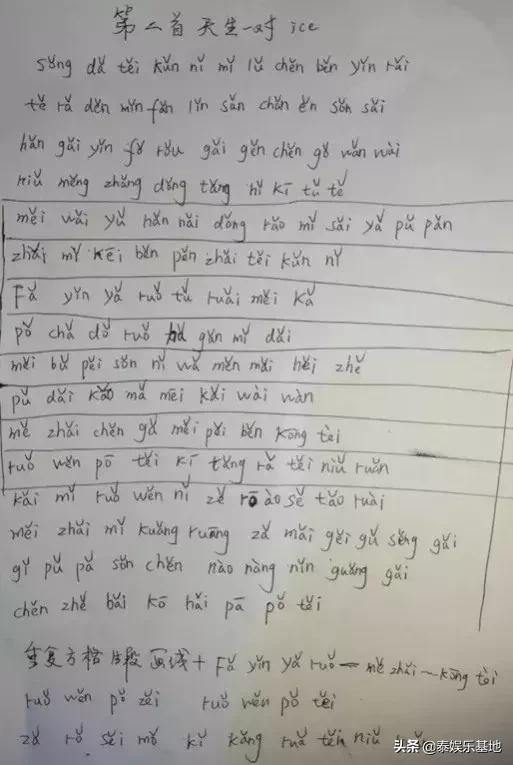 第二首天生一对 ice
sǒng dǎ těi kǔn nǐ mǐ lǔ chěn běn yǐn rǎi
tě rǎ děn mǐn fǎn lǐn sǎn chǎn ěn sǒn sǎi
hǎn gǎi yǐn fǒ rǒu gǎi gěn chěn gǒ wǎn wài
niǔ měng zhǎng dǒng tǎng nǐ kī tǔ tě
měi wǎi yǔ hǎn nǎi dǒng rǎo mǐ sǎi yǎ pǔ pǎn
zhǎi mǐ kēi běn pěn zhǎi těi kǔn nǐ
Fǎ yǐn yǎ ruǒ tǔ ruǎi měi kǎ
pǒ chǎ dǒ ruǒ hǎ gǎn mǐ dǎi
měi bǔ pěi sǒn nǐ wǎ měn mǎi hěi zhě
pǔ dǎi kǎo mǎ mēi kǎi wài wàn
mě zhǎi chěn gǎ měi pěi běn kōng tèi
ruǒ wěn pō těi kī tǎng rǎ těi niǔ ruǎn
kǎi mǐ ruǒ wěn nǐ zě rō ào sě tǎo ruài
měi zhǎi mǐ kuǎng ruāng zǎ mǎi gěi gǔ sěng gǎi
gǐ pǔ pǎ sǒn chěn nào nàng nǐn guǎng gǎi
chěn zhě bǎi kō hǎi pā pǒ těi
重复方格片段画线+ Fǎ yǐn yǎ ruǒ — mě zhǎi — kōng tèi
ruǒ wěn pǒ zěi ruǒ wěn pǒ těi
zǎ rǒ sěi mǒ kǐ kǎng ruǎ těn niǔ
头条 @泰娱乐基地